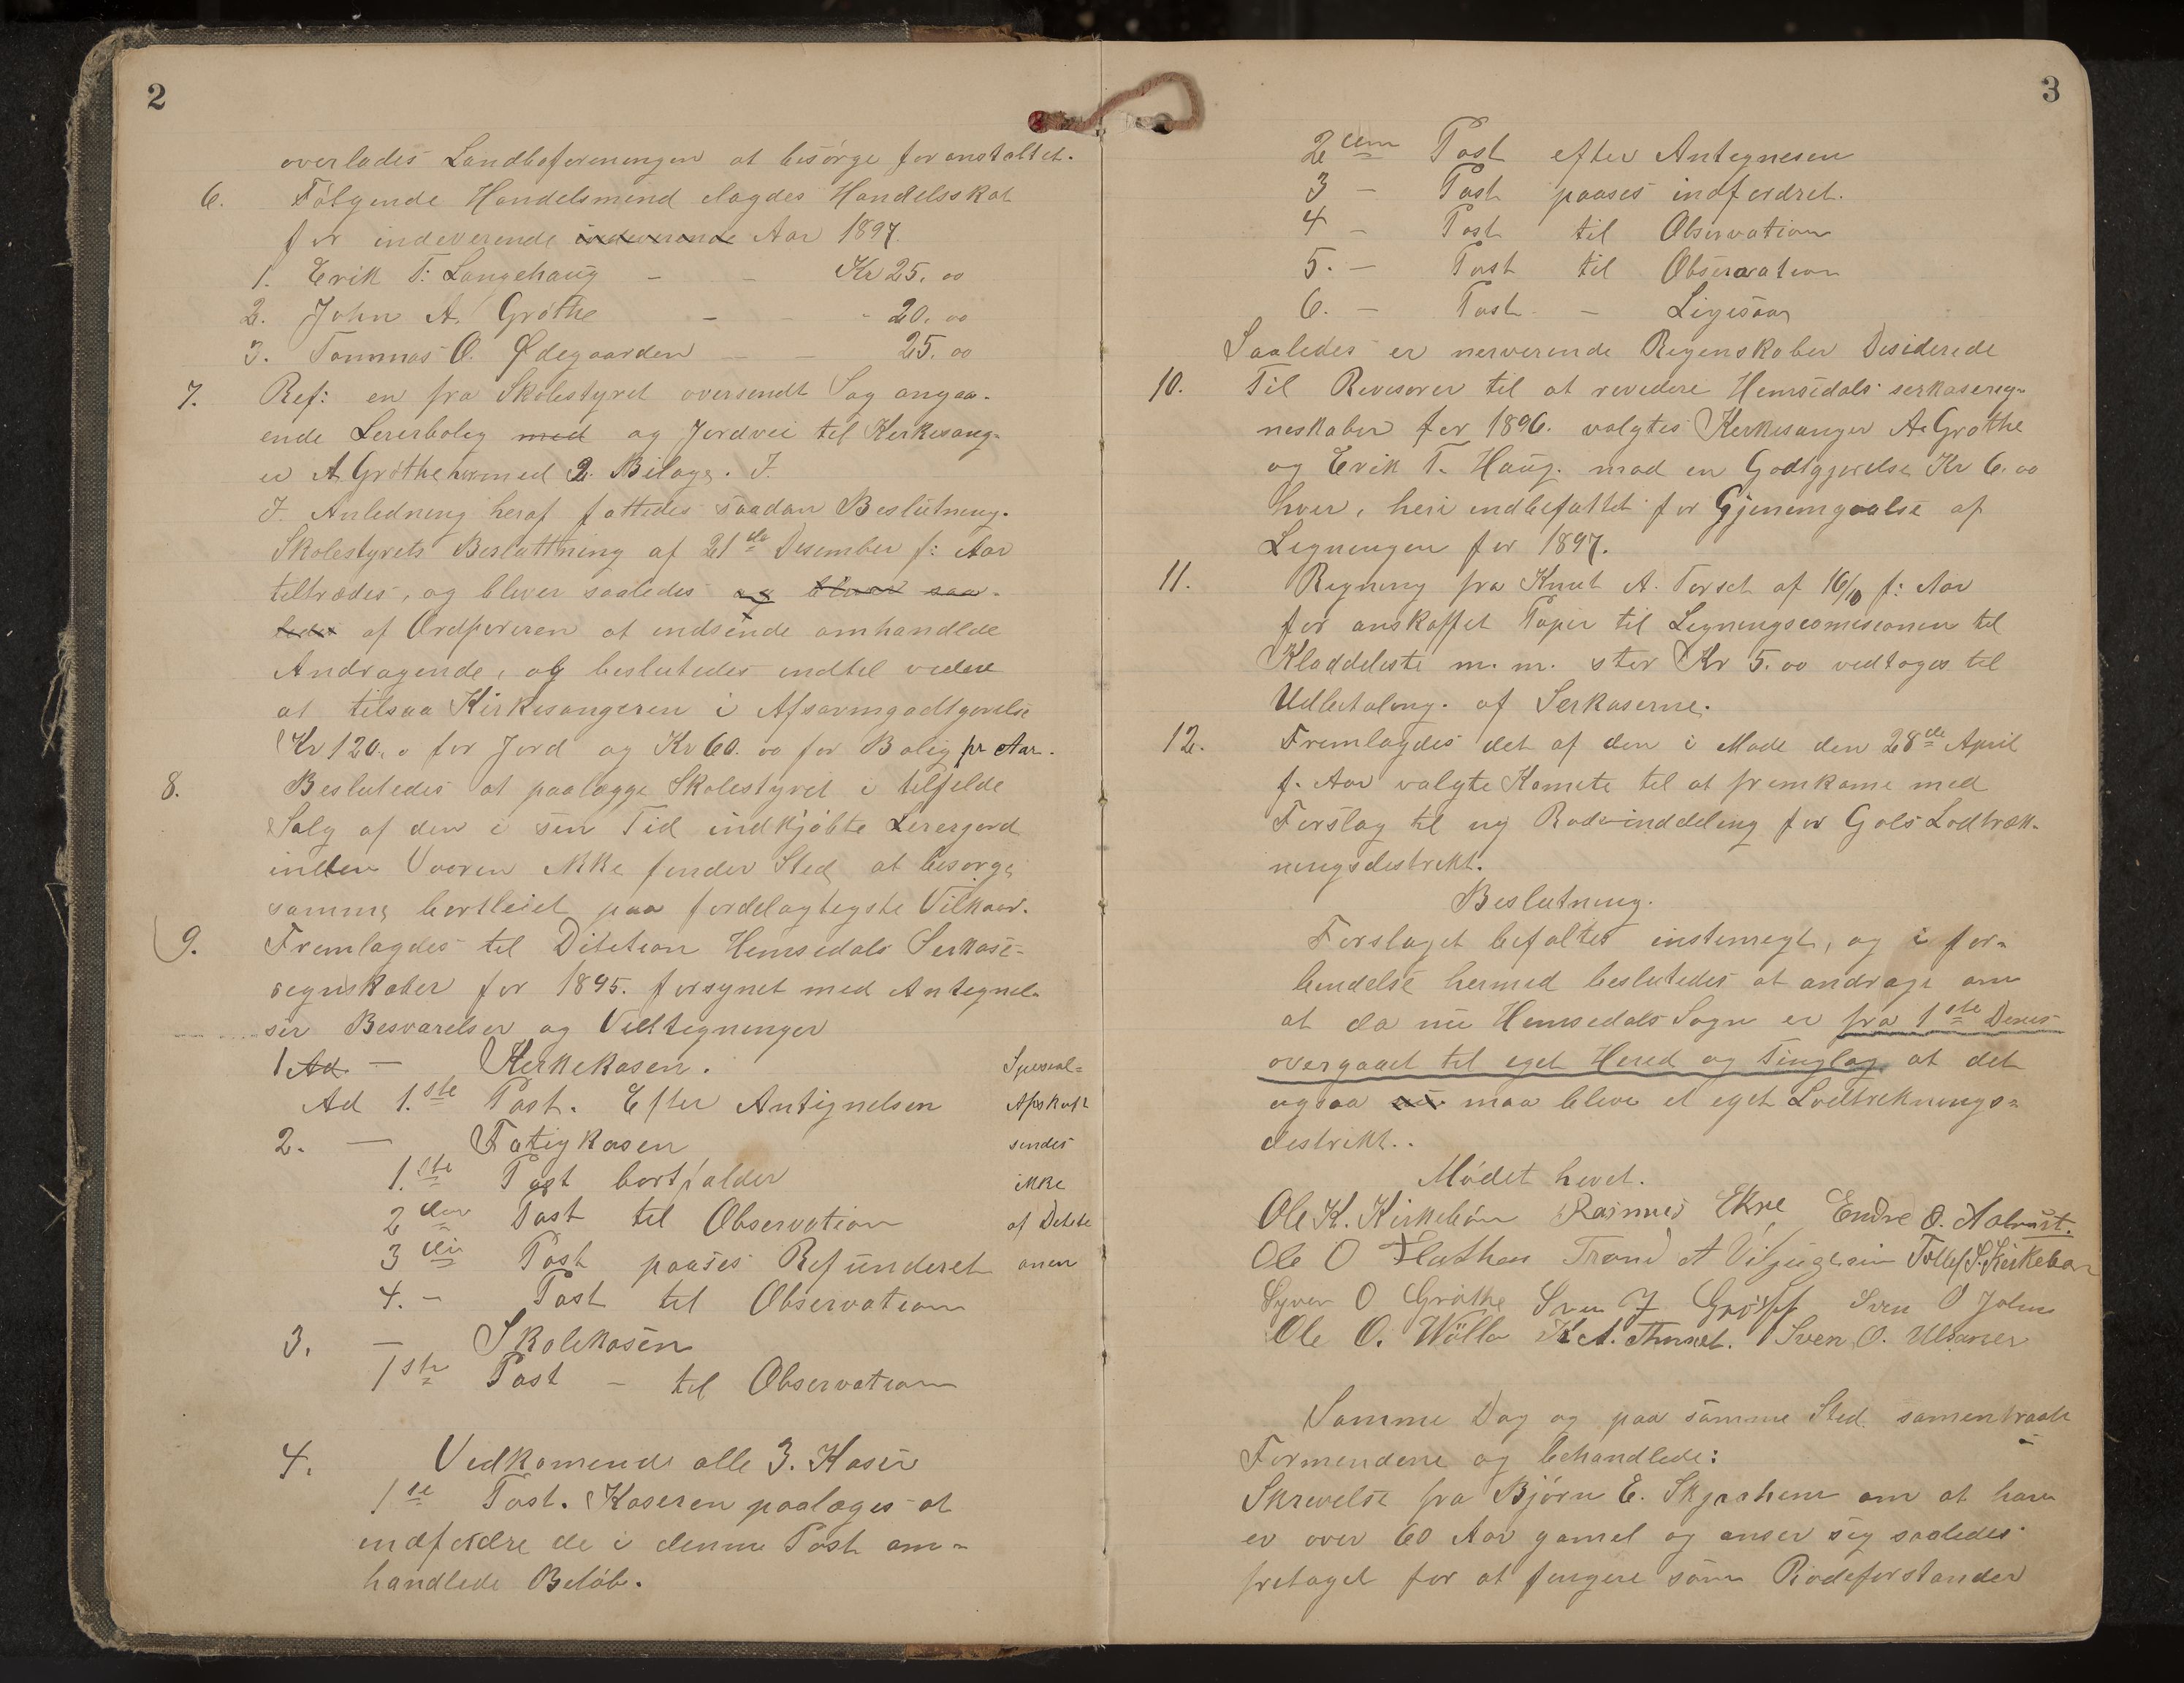 2
overlades Landboforeningen at besørge foranstaltet.
6. Følgende Handelsmend ilagdes Handelsskat
for indeverende indeverende Aar 1897.
1. Erik T: Langehaug - - Kr 25.00
2. John A. Grøthe - - - 20.00
3. Tommas O. Ødegaarden - - 25.00
7. Ref: en fra Skolestyret oversendt Sag angaa-
ende Lererbolig med og Jordvei til Kerkesang-
er A Grøthe hermed 2. Bilage. I.
I. Anledning heraf fattedes saadan Beslutning.
Skolestyrets Besluttning af 21de Desember f: Aar
tiltrædes, og bliver saaledes og bliver saa-
ledes af Ordføreren at indsende omhandlede
Andragende, og beslutedes indtil videre
at tilsaa Kirkesangeren i Afsavnsgodtgjorelse
Kr 120.0 for Jord og Kr 60.00 for Bolig pr Aar.
8. Beslutedes at paalægge Skolestyret i tilfelde
Salg af den i sin Tid indkjøbte Lererjord
inden Vaaren ikke finder Sted at besørge
samme bortleiet paa fordelagtigste Vilkaar.
9. Fremlagdes til Ditetion Hemsedals Serkase-
regnskaber for 1895. forsynet med Antegnel-
ser Besvarelser og Vedtegninger
1 Ad - Kerkekasen.
Ad 1.ste Post. Efter Antignelsen
2. - Fatigkasen
1.ste Post bortfalder
2den Post til Observation
3die Post paases Refunderet
4. - Post til Observation
3. - Skolekasen
1ste Post - til Observation
Spesial-
Afskoft
sendes
ikke
af Detete
onen
4. Vedkomende alle 3. Kaser
1se Post. Kaseren paalæges at
indfordre de i denne Post om-
handlede Beløb.
3
2den Post efter Antegnesen
3 - Post paases indfordret.
4 - Post til Observation
5. - Post til Observation
6. - Post - Ligesaa
Saaledes er nerverende Regenskaber Desiderede
10. Til Revisorer til at revedere Hemsedals serkasereg-
neskaber for 1896. valgtes Kerkesanger A. Grøthe
og Erik T. Haug. mod en Godtgjørelse Kr 6.00
hver, heri indbefattet for Gjenemgaalse af
Legningen for 1897.
11. Regning fra Knut A. Torset af 16/10 f: Aar
for anskaffet Papir til Legningscomisionen til
Kladdeliste m. m. stor Kr 5.00 vedtoges til
Udbetaling. af Serkaserne.
12. Fremlagdes det af den i Møde den 28de April
f. Aar valgte Komete til at fremkome med
Forslag til ny Rodeinddeling for Gols Lodtræk-
ningsdestrikt.
Beslutning.
Forslaget befaltes enstemegt, og i for-
bendelse hermed beslutedes at andrage om
at da nu Hemsedals Sogn er fra 1ste Denes
overgaaet til eget Hered og Tinglag at det
ogsaa maa blive et eget Lodtreknings-
destrikt..
Mødet hevet.
Ole K. Kirkebøn Rasmus Ekre Endre O.
Ole O Trond A Tollef S. Kirkebøn
Syver O Grøthe Sven J Grøtt Sven O
Ole O. Wølla K A. Sven O. Ulsaker
Samme Dag og paa samme Sted samentraadte
Formendene og behandlede:
Skrevelse fra Bjørn E. Skjerheim om at han
er over 60 Aar gamel og anser sig saaledes
fretaget for at fungere som Rodeforstander